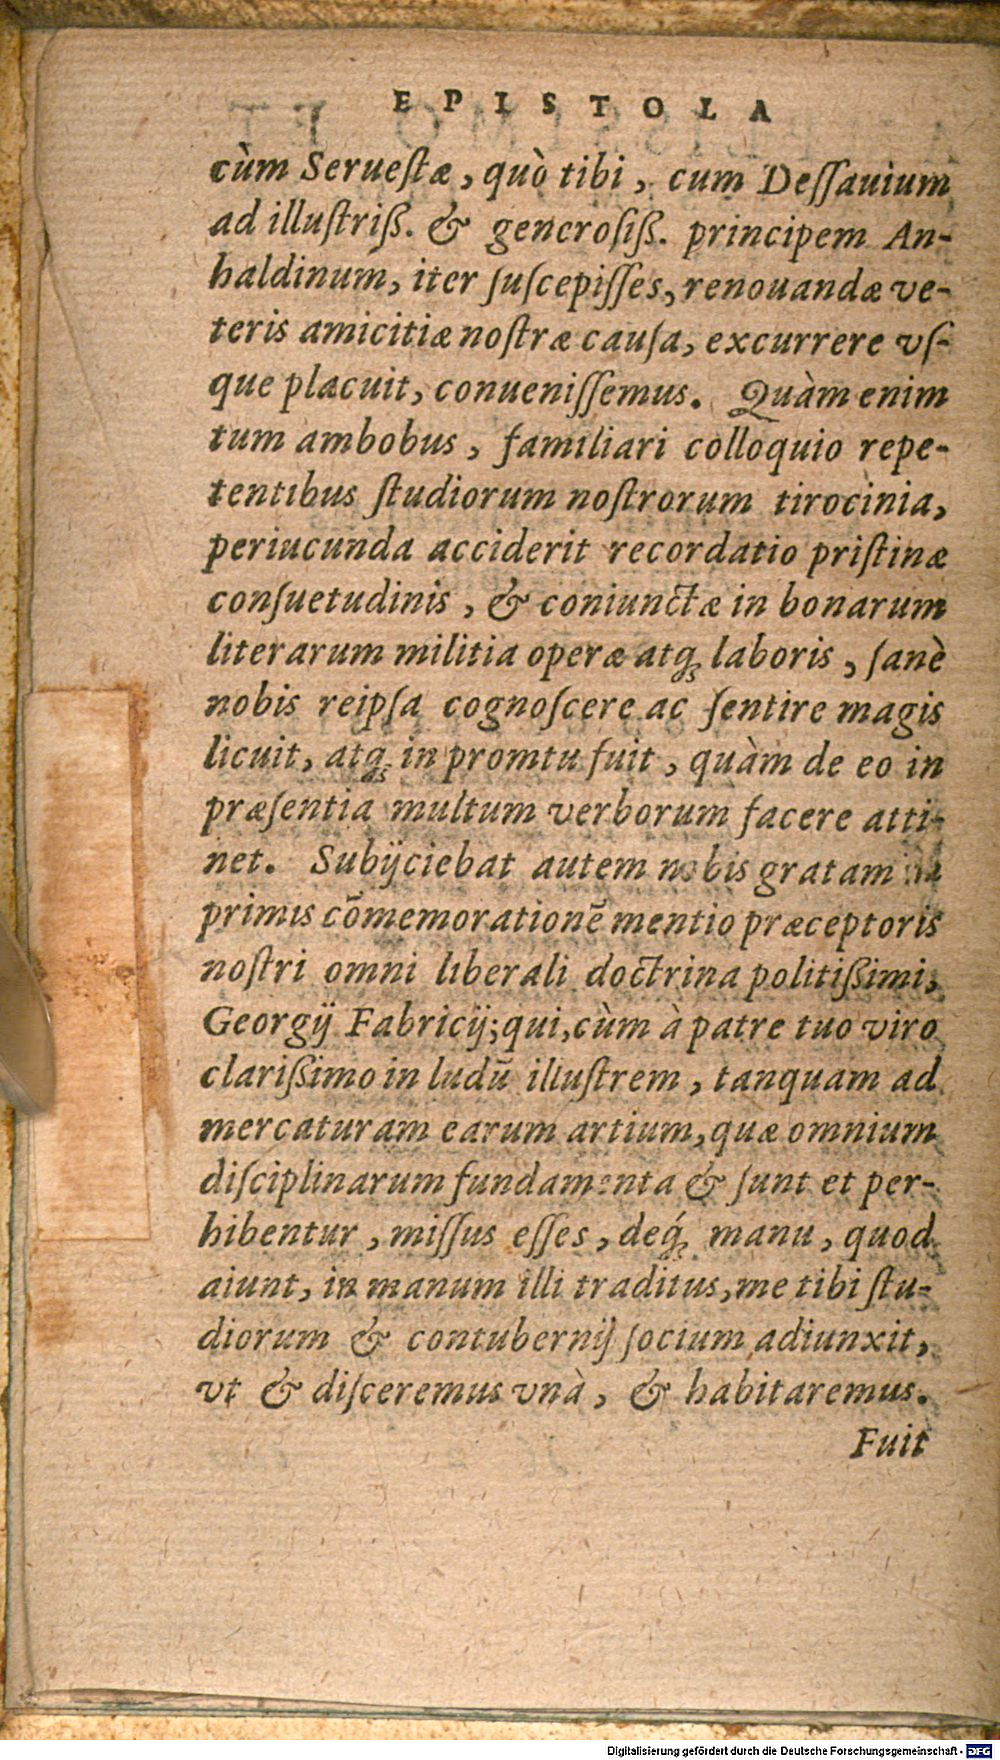 EPISTOLA
cùm Serueſtæ, quò tibi, cum Deſſauium
ad illuſtriß. & generoſiß. principem An-
haldinum, iter ſuſcepiſſes, renouandæ ve-
teris amicitiæ noſtræ cauſa, excurrere vſ-
que placuit, conueniſſemus. Quàm enim
tum ambobus, familiari colloquio repe-
tentibus ſtudiorum noſtrorum tirocinia,
periucunda acciderit recordatio priſtinæ
conſuetudinis, & coniunctæ in bonarum
literarum militia operæ atq; laboris, ſanè
nobis reipſa cognoſcere ac ſentire magis
licuit, atq; in promtu fuit, quàm de eo in
præſentia multum verborum facere atti-
net. Subijciebat autem nobis gratam in
primis cōmemorationē mentio præceptoris
noſtri omni liberali doctrina politißimi,
Georgij Fabricij; qui, cùm à patre tuo viro
clarißimo in ludū illuſtrem, tanquam ad
mercaturam earum artium, quæ omnium
diſciplinarum fundamenta & ſunt et per-
hibentur, miſſus eſſes, deq́; manu, quod
aiunt, in manum illi traditus, me tibi ſtu-
diorum & contubernij ſocium adiunxit,
vt & diſceremus vnà, & habitaremus.
Fuit
Digitalisierung gefördert durch die Deutsche Forschungsgemeinschaft - DFG